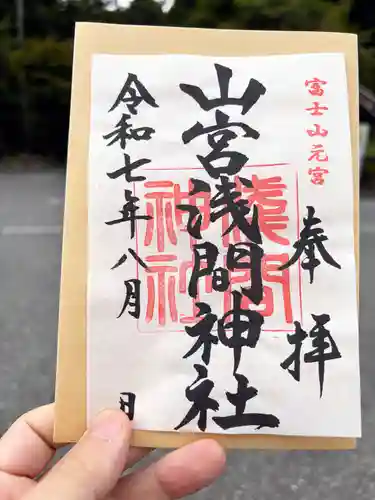 富士山元宮
奉拝
山宮浅間神社
淺間神社
令和七年八月 日